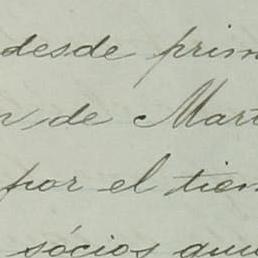 desde prim
de Mart
por el tiem
sócios